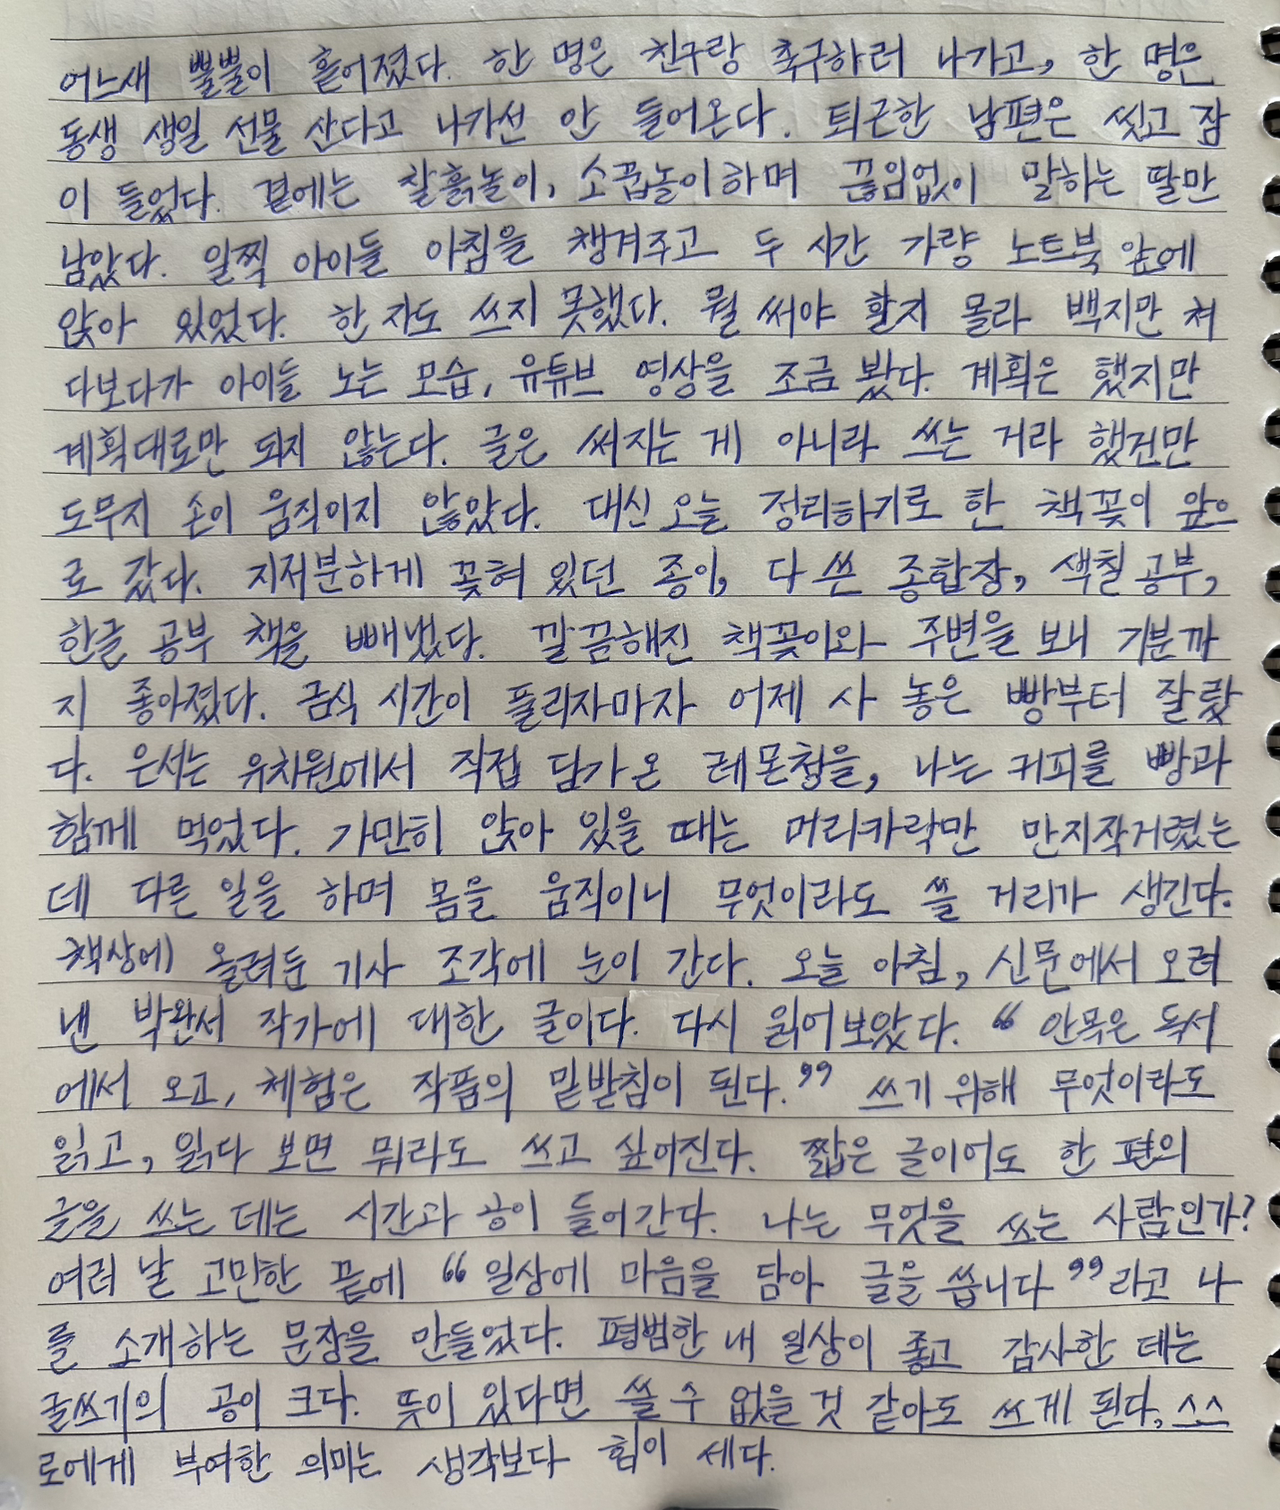 어느새 뿔뿔이 흩어졌다. 한 명은 친구랑 축구하러 나가고, 한 명은
동생 생일 선물 산다고 나가선 안 들어온다. 퇴근한 남편은 씻고 잠
이 들었다. 곁에는 찰흙놀이, 소꿉놀이하며 끊임없이 말하는 딸만
남았다. 일찍 아이들 아침을 챙겨주고 두 시간 가량 노트북 앞에
앉아 있었다. 한 자도 쓰지 못했다. 뭘 써야 할지 몰라 백지만 쳐
다보다가 아이들 노는 모습, 유튜브 영상을 조금 봤다. 계획은 했지만
계획대로만 되지 않는다. 글은 써지는 게 아니라 쓰는 거라 했건만
도무지 손이 움직이지 않았다. 대신 오늘 정리하기로 한 책꽂이 앞으
로 갔다. 지저분하게 꽂혀 있던 종이, 다 쓴 종합장, 색칠 공부,
한글 공부 책을 빼냈다. 깔끔해진 책꽂이와 주변을 보니 기분까
지 좋아졌다. 금식 시간이 풀리자마자 어제 사 놓은 빵부터 잘랐
다. 은서는 유치원에서 직접 담가 온 레몬청을, 나는 커피를 빵과
함께 먹었다. 가만히 앉아 있을 때는 머리카락만 만지작거렸는
데 다른 일을 하며 몸을 움직이니 무엇이라도 쓸 거리가 생긴다.
책상에 올려둔 기사 조각에 눈이 간다. 오늘 아침, 신문에서 오려
낸 박완서 작가에 대한 글이다. 다시 읽어보았다. “안목은 독서
에서 오고, 체험은 작품의 밑받침이 된다.” 쓰기 위해 무엇이라도
읽고, 읽다 보면 뭐라도 쓰고 싶어진다. 짧은 글이어도 한 편의
글을 쓰는 데는 시간과 공이 들어간다. 나는 무엇을 쓰는 사람인가?
여러 날 고민한 끝에 “일상에 마음을 담아 글을 씁니다”라고 나
를 소개하는 문장을 만들었다. 평범한 내 일상이 좋고 감사한 데는
글쓰기의 공이 크다. 뜻이 있다면 쓸 수 없을 것 같아도 쓰게 된다. 스스
로에게 부여한 의미는 생각보다 힘이 세다.